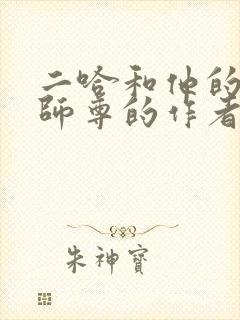 二哈和他的
師尊的作者
朱神寶